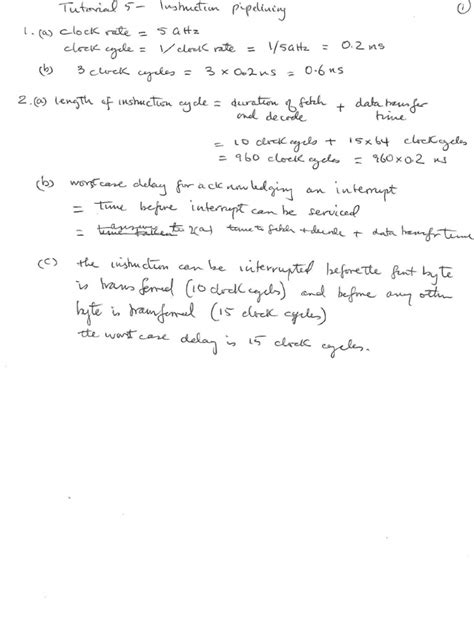 Tutorial 5 - Instruction pipelining ①
1. (a) clock rate = 5 GHz
clock cycle = 1/clock rate = 1/5GHz = 0.2 ns
(b) 3 clock cycles = 3 × 0.2 ns = 0.6 ns
2. (a) length of instruction cycle = duration of fetch and decode + data transfer time
= 10 clock cycles + 15×64 clock cycles
= 960 clock cycles = 960×0.2 ns
(b) worst case delay for acknowledging an interrupt
= time before interrupt can be serviced
= time to fetch + decode + data transfer time
(c) the instruction can be interrupted before the first byte
is transferred (10 clock cycles) and before any other
byte is transferred (15 clock cycles)
the worst case delay is 15 clock cycles.